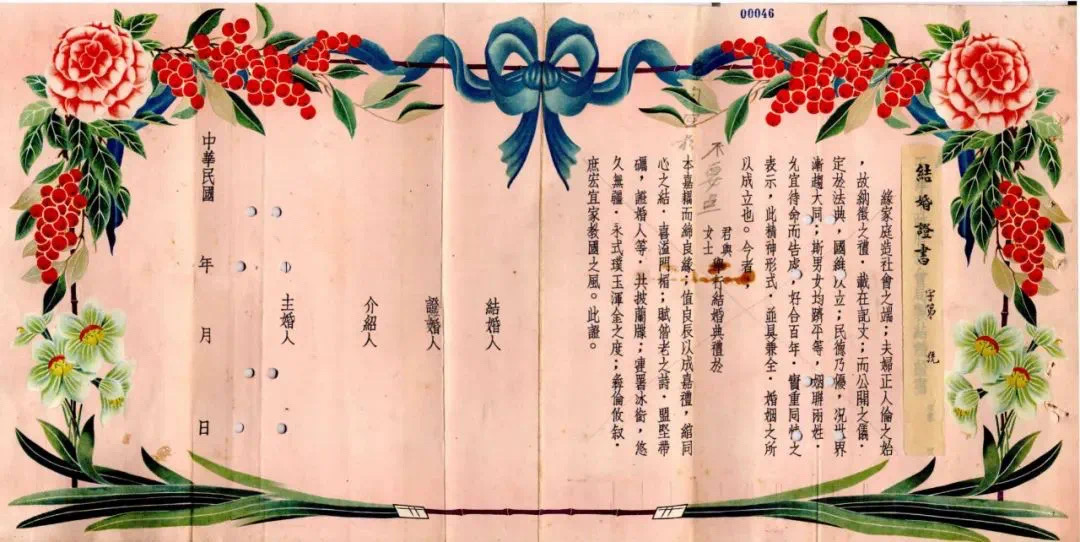 00046
結婚證書 字第 號
緣家庭造社會之端；夫婦正人倫之始
，故納徵之禮．載在記文；而公開之儀．
定於法典，國維以立；民德乃優，況世界
漸趨大同；斯男女均躋平等，姻聯兩姓．
允宜待命而告成，好合百年．實重同情之
表示，此精神形式．並具兼全．婚姻之所
以成立也。今者，
君與
女士 舉行結婚典禮於
本嘉耦而締良緣；值良辰以成嘉禮，綰同
心之結．喜溢門楣；賦偕老之詩．盟堅帶
礪，證婚人等．共披蘭牒；連署冰銜，悠
久無疆．永式璞玉渾金之度；彝倫攸叙．
庶宏宜家教國之風。此證。
結婚人
證婚人
介紹人
主婚人
中華民國 年 月 日